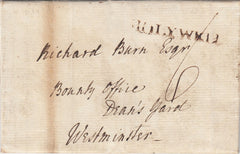 HOLYWELL
Richard Burn Esqr
6
Bounty Office
Dean's Yard
Westminster